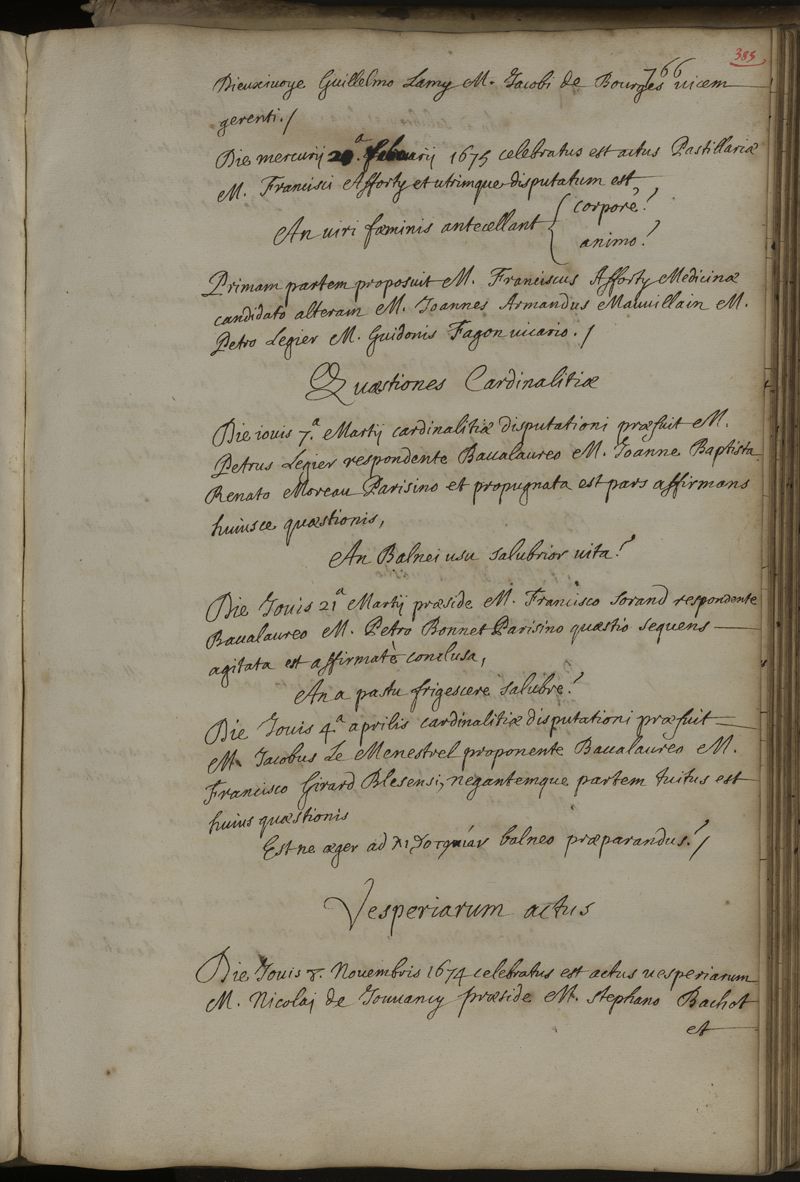 385
766
Dieuxivoye Guillelmo Lamy M. Jacobi de Bourges vicem
gerenti./
Die mercurij 20.a februarij 1675 celebratus est actus Pastillariæ
M. Francisci Afforty et utrimque disputatum est
An viri fæminis antecellant { corpore?
animo?
Primam partem proposuit M. Franciscus Afforty Medicinæ
candidato alteram M. Joannes Armandus Mauvillain M.
Petro Legier M. Guidonis Fagon vicario./
Quæstiones Cardinalitiæ
Die iovis 7.a Martij cardinalitiæ disputationi præfuit M.
Petrus Legier respondente Baccalaureo M. Joanne Baptista
Renato Moreau Parisino et propugnata est pars affirmans
huiusce quæstionis,
An Balnei usu salubrior vita?
Die Jovis 21a Martij præside M. Francisco Lorand respondente
Baccalaureo M. Petro Bonnet Parisino quæstio sequens
agitata est affirmatè conclusa,
An a pastu frigescere salubre?
Die Jovis 4.a aprilis cardinalitiæ disputationi præfuit
M. Jacobus Le Menestrel proponente Baccalaureo M.
Francisco Girard Blesensi, negantemque partem tuitus est
huius quæstionis
Est ne æger ad balneo præparandus?/
Vesperiarum actus
Die Jovis 8. Novembris 1674 celebratus est actus vesperiarum
M. Nicolaj de Jouvancy præside M. Stephano Bachot
et